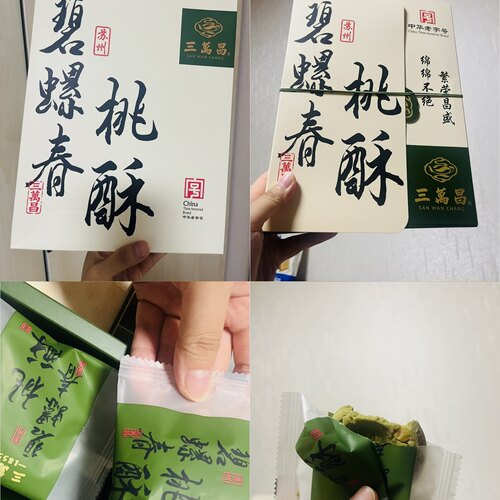 碧螺春
桃酥
苏州
三萬昌
三萬昌
SAN WAN CHANG
China
Time-honored
Brand
中华老字号
碧螺春
桃酥
苏州
三萬昌
中华老字号
China Time-honored Brand
繁荣昌盛
绵绵不绝
三萬昌
SAN WAN CHANG
碧螺春
桃酥
三萬昌
碧螺春
桃酥